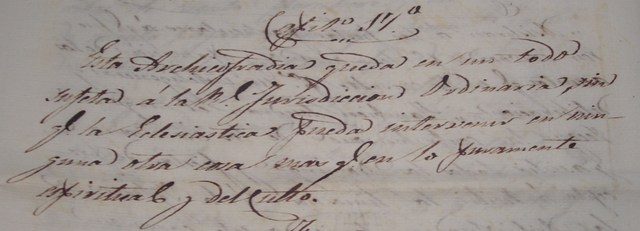 Capitº 17º
Esta Archicofradia queda en un todo
sujeta á la Rl Jurisdiccion Ordinaria, sin
q.e la Eclesiastica pueda intervenir en nin-
guna otra cosa mas q.e en lo puramente
espiritual y del Culto.